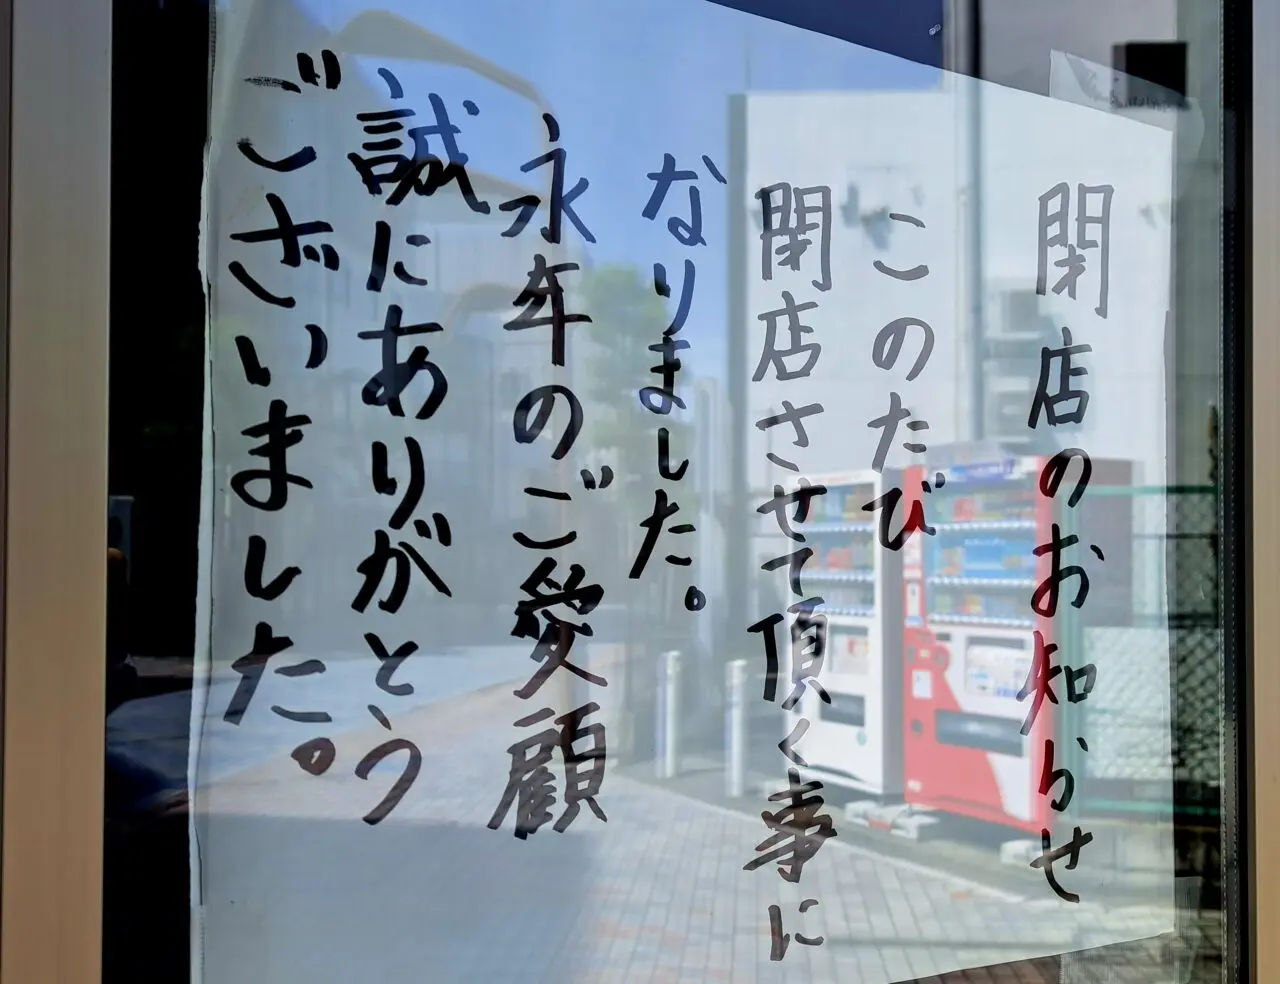 閉店のお知らせ
このたび
閉店させて頂く事に
なりました。
永年のご愛顧
誠にありがとう
ございました。